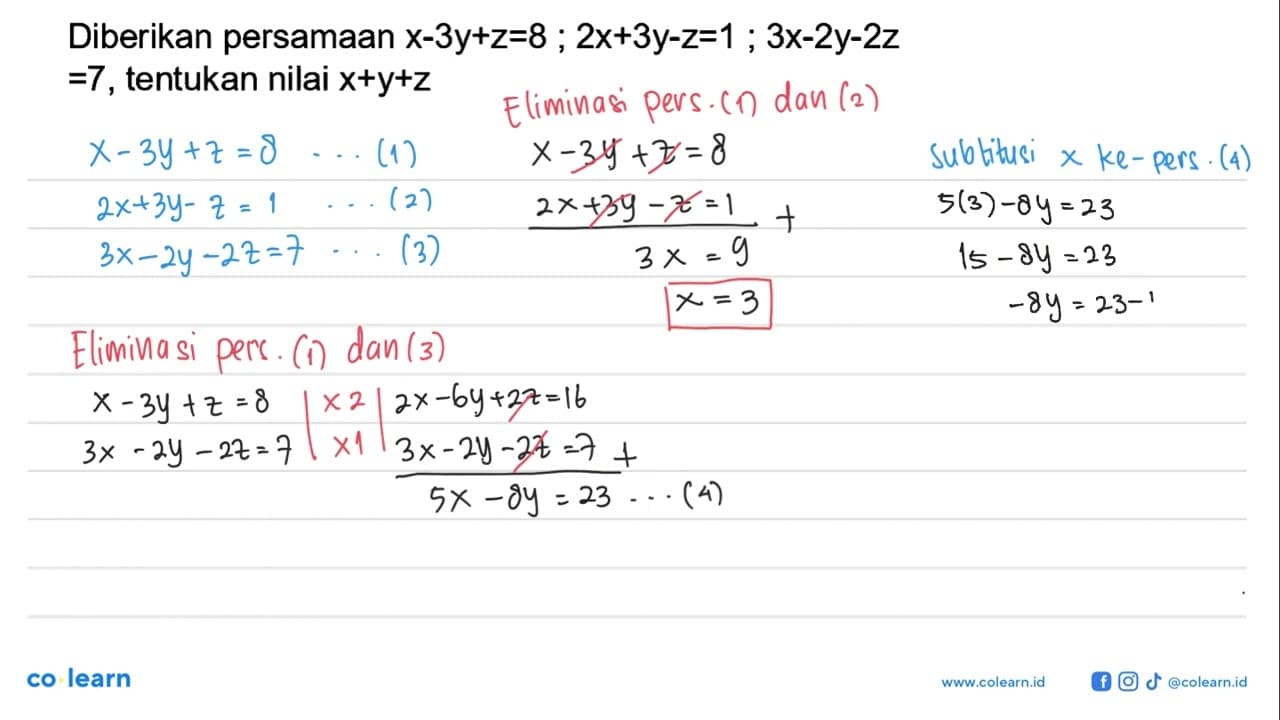 Diberikan persamaan x-3y+z=8 ; 2x+3y-z=1 ; 3x-2y-2z
=7, tentukan nilai x+y+z
x - 3y + z = 8 ... (1)
2x+3y- z = 1 ... (2)
3x-2y-2z=7 ... (3)
Eliminasi pers. (1) dan (2)
x - 3y + z = 8
2x + 3y - z = 1 +
3x = 9
x = 3
Eliminasi pers. (1) dan (3)
x - 3y + z = 8 | x 2 | 2x - 6y + 2z = 16
3x - 2y - 2z = 7 | x1 | 3x - 2y - 2z = 7 +
5x - 8y = 23 ... (4)
Subtitusi x ke-pers. (4)
5(3) - 8y = 23
15 - 8y = 23
-8y = 23-1
co learn
www.colearn.id
@colearn.id